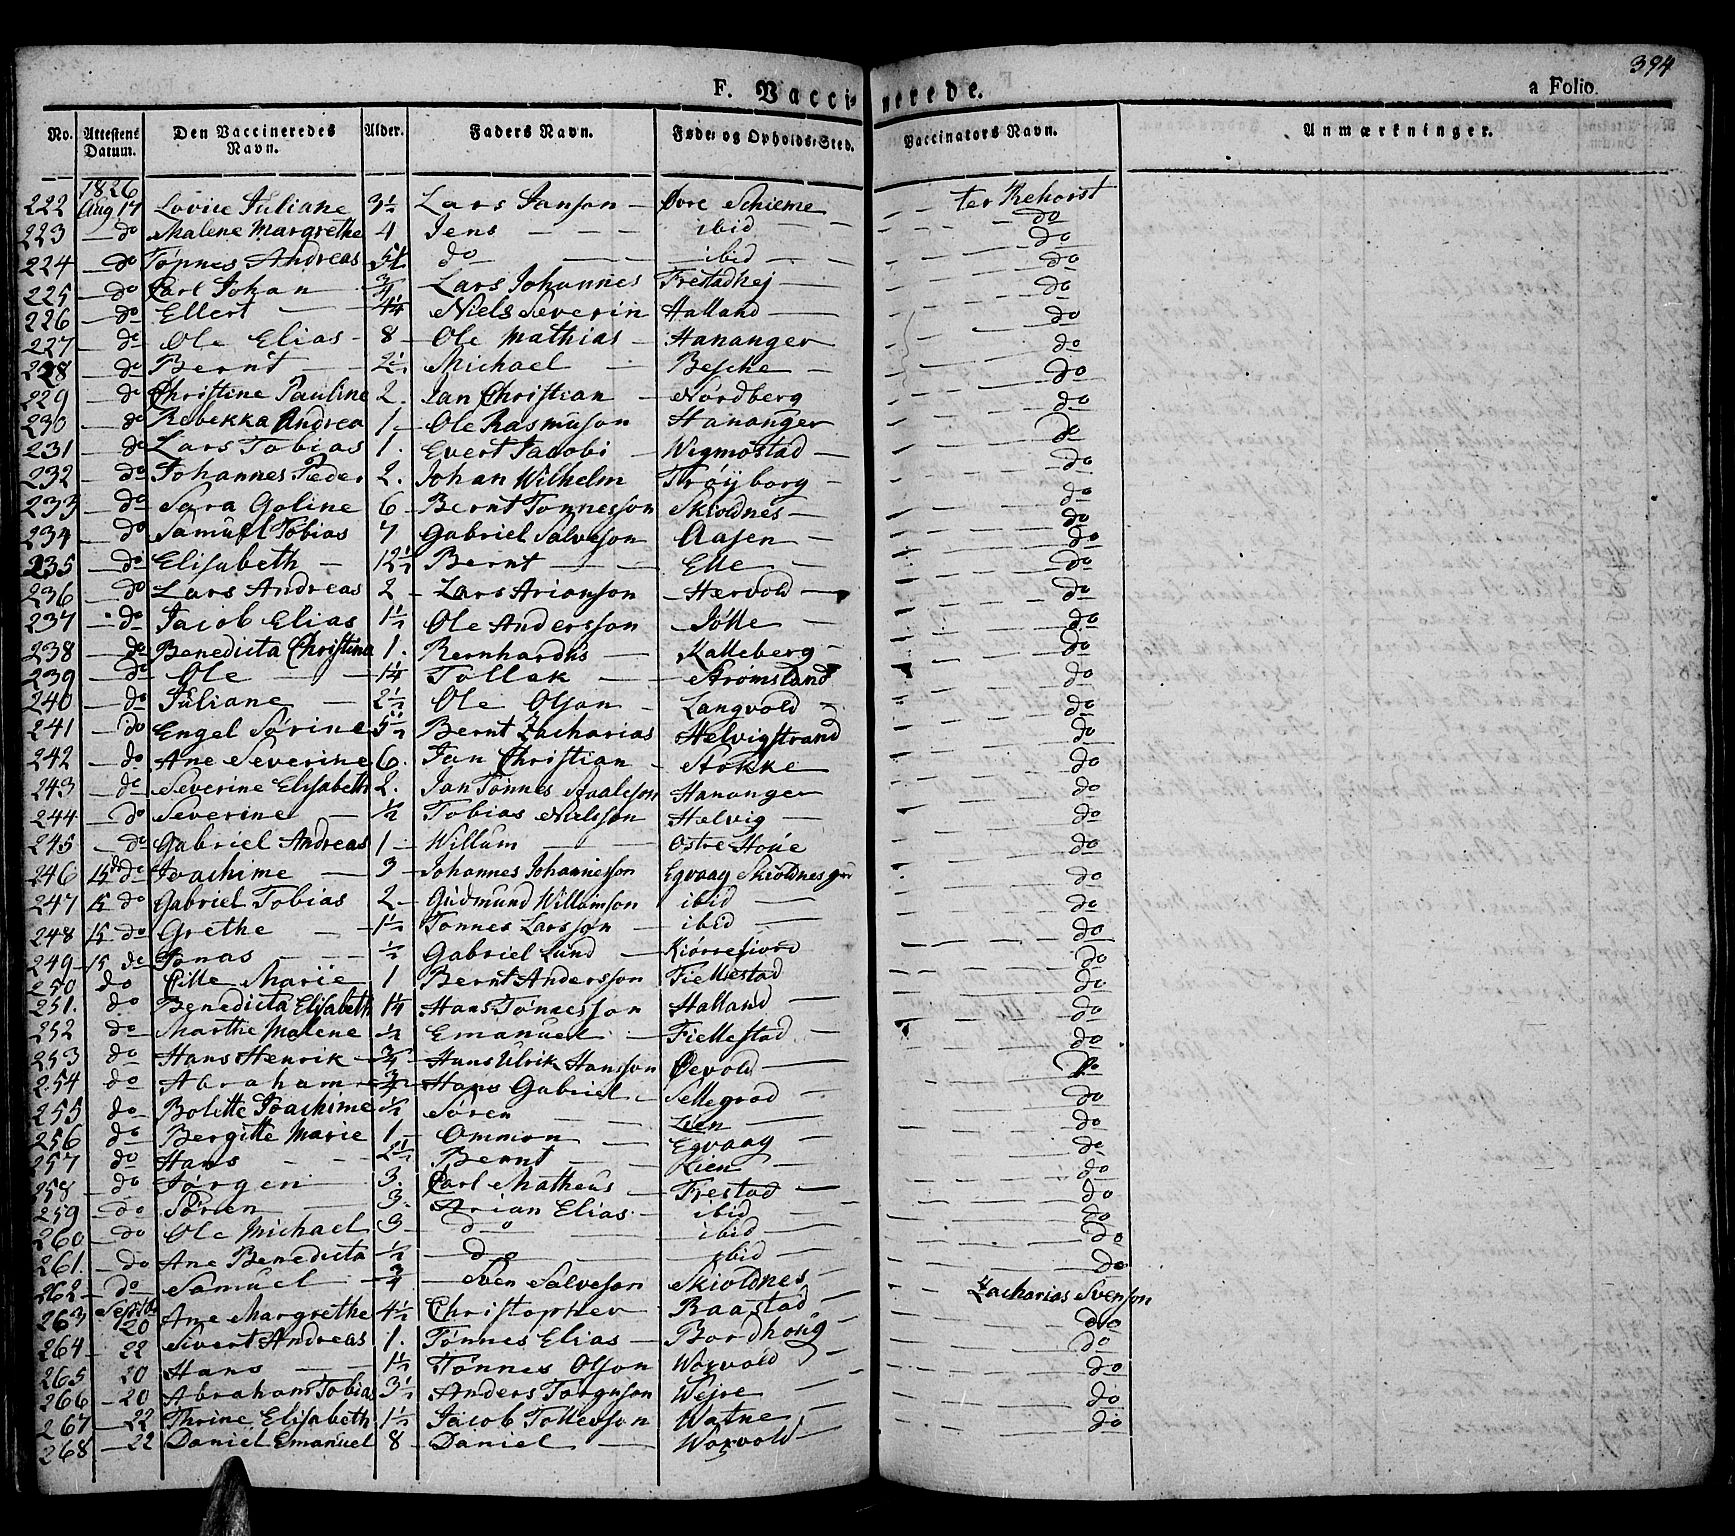 394
F. Vaccinerede.
a Folio.
No. Attestens Datum. Den Vaccineredes Navn. Alder. Faders Navn. Føde- og Opholds-Sted. Vaccinators Navn. Anmærkninger.
1826
222 Aug 17 Lovise Juliane 3½ Lars Janson Øvre Skieme ter Rehorst
223 do Malene Margrethe 4 Jens ibid do
224 do Tønnes Andreas do ibid do
225 do Carl Johan ¾ Lars Johannes Frestadhej do
226 do Ellert 4¼ Niels Severin Halland do
227 do Ole Elias 8 Ole Mathias Hananger do
228 do Bernt 2½ Michael do
229 do Christine Pauline 2. Jan Christian Nordberg do
230 do Rebekka Andrea 1 Ole Rasmuson Hananger do
231 do Lars Tobias 1. Evert Jacobi Wigmostad do
232 do Johannes Peder 2. Johan Wilhelm Trøyborg do
233 do Sara Goline 6 Bernt Tønnesson Skioldnes do
234 do Samuel Tobias 7 Gabriel Salveson Aasen do
235 do Elisabeth 12½ Bernt Elle do
236 do Lars Andreas 2 Lars Arianson Hervold do
237 do Jacob Elias 1½ Ole Andersson Jølle do
238 do Benedicta Christina 1. Bernhardus Kalleberg do
239 do Ole 1¼ Tollak Strømsland do
240 do Juliane 2½ Ole Olson Langvold do
241 do Engel Sørine 5½ Bernt Zacharias Helvigstrand do
242 do Ane Severine 6. Jan Christian Stokke do
243 do Severine Elisabeth 2. Jan Tønnes Hananger do
244 do Severine ½ Tobias Nielsson Helvig do
245 do Gabriel Andreas 1 Willum Ostre do
246 15 do Joachime 3 Johannes Johannesson Egvaag Skioldnes do
247 15 do Gabriel Tobias 2 Gudmund Willumson ibid do
248 15 do Grethe 1½ Tønnes Larsson ibid do
249 15 do Jonas ½ Gabriel Lund Kiørrefiord do
250 do Cille Marie 1 Bernt Andersson Fiellestad do
251. do Benedicta Elisabeth 1¼ Hans Tønnesson Halland do
252 do Marthe Malene ½ Emanuel Fiellestad do
253 do Hans Henrik ¾ Hans Ulrik Hansson Øevold do
254 do Abraham ¾ Hans Gabriel Sellegrod do
255 do Bolette Joachime ½ Søren Lien do
256 do Bergitte Marie 1 Ommon Egvaag do
257 do Hans 2½ Bernt Lien do
258 do Jørgen 3. Carl Matheus Frestad do
259 do Søren 3. Arian Elias ibid do
260 do Ole Michael 3 do ibid do
261. do Ane Benedicta ½ do ibid do
262 do Samuel ¾ Sven Salveson Skioldnes Zacharias Svenson
263 Septbr 20 Ane Margrethe 4½ Christopher Raastad do
264 22 Sivert Andreas 1. Tønnes Elias Bordhoug do
265 20 Hans 1½ Tønnes Olson Worvold do
266 20 Abraham Tobias 3½ Anders Wejre do
267 22 Thrine Elisabeth 1½ Jacob Tollesson Watne do
268 22 Daniel Emanuel 8 Daniel Worvold